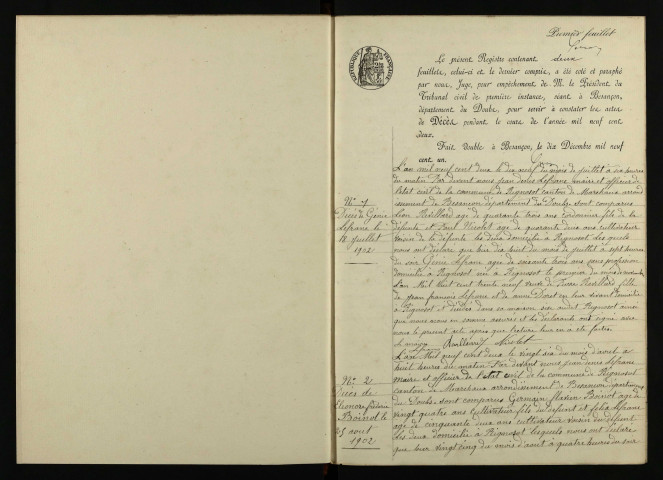 Premier feuillet
Le présent Registre contenant deux
feuillets, celui-ci et le dernier compris, a été coté et paraphé
par nous, Juge, pour empêchement de M. le Président du
Tribunal civil de première instance, séant à Besançon,
département du Doubs, pour servir à constater les actes
de Décès pendant le cours de l'année mil neuf cent
deux.
Fait double à Besançon, le dix Décembre mil neuf
cent un.
RÉPUBLIQUE FRANÇAISE
N° 1
Décès de Génie
Lefranc le
18 juillet
1902
L'an mil neuf cent deux le dix neuf du mois de juillet à six heures
du matin Par devant nous jean Lefranc maire et officier de
l'etat civil de la commune de Rignosot canton de Marchaux arrond
issement de Besançon département du Doubs sont comparus
Léon agé de quarante trois ans cordonnier fils de la
défunte et Paul Nicolet agé de quarante deux ans cultivateur
voisin de la défunte les deux domicilié à Rignosot les quels
nous ont déclaré que hier dix huit du mois de juillet à sept heures
du soir Génie Lefranc agée de soixante trois ans sans profession
domicilié à Rignosot née à Rignosot le premier du mois de
L'an Mil huit cent trente neuf veuve de fille
de jean françois Lefranc et de anne en leur vivant domicilié
à Rignosot est décédée dans sa maison sur audit Rignosot ainsi
que nous nous en sommes assurés et les déclarants ont signé avec
nous le present acte apres que lecture leur en a été faite
Le maire Nicolet
N° 2
Décès de
Eleonore frederic
Boinot le
25 aout
1902
L'an Mil neuf cent deux le vingt six du mois d'aout à
huit heures du matin Par devant nous jean Lefranc
maire et officier de l'etat civil de la commune de Rignosot
canton de Marchaux arrondissement de Besançon département
du Doubs sont comparus Germain Boinot agé de
vingt quatre ans cultivateur fils du defunt et felix Lefranc
agé de cinquante deux ans cultivateur voisin du defunt
les deux domicilié à Rignosot lesquels nous ont déclaré
que hier vingt cinq du mois d'aout à quatre heures du soir